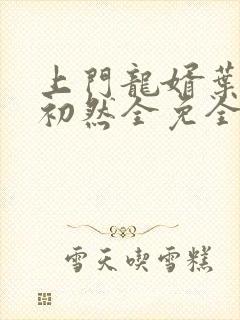 上門龍婿葉
初然全免全
雪天喫雪糕